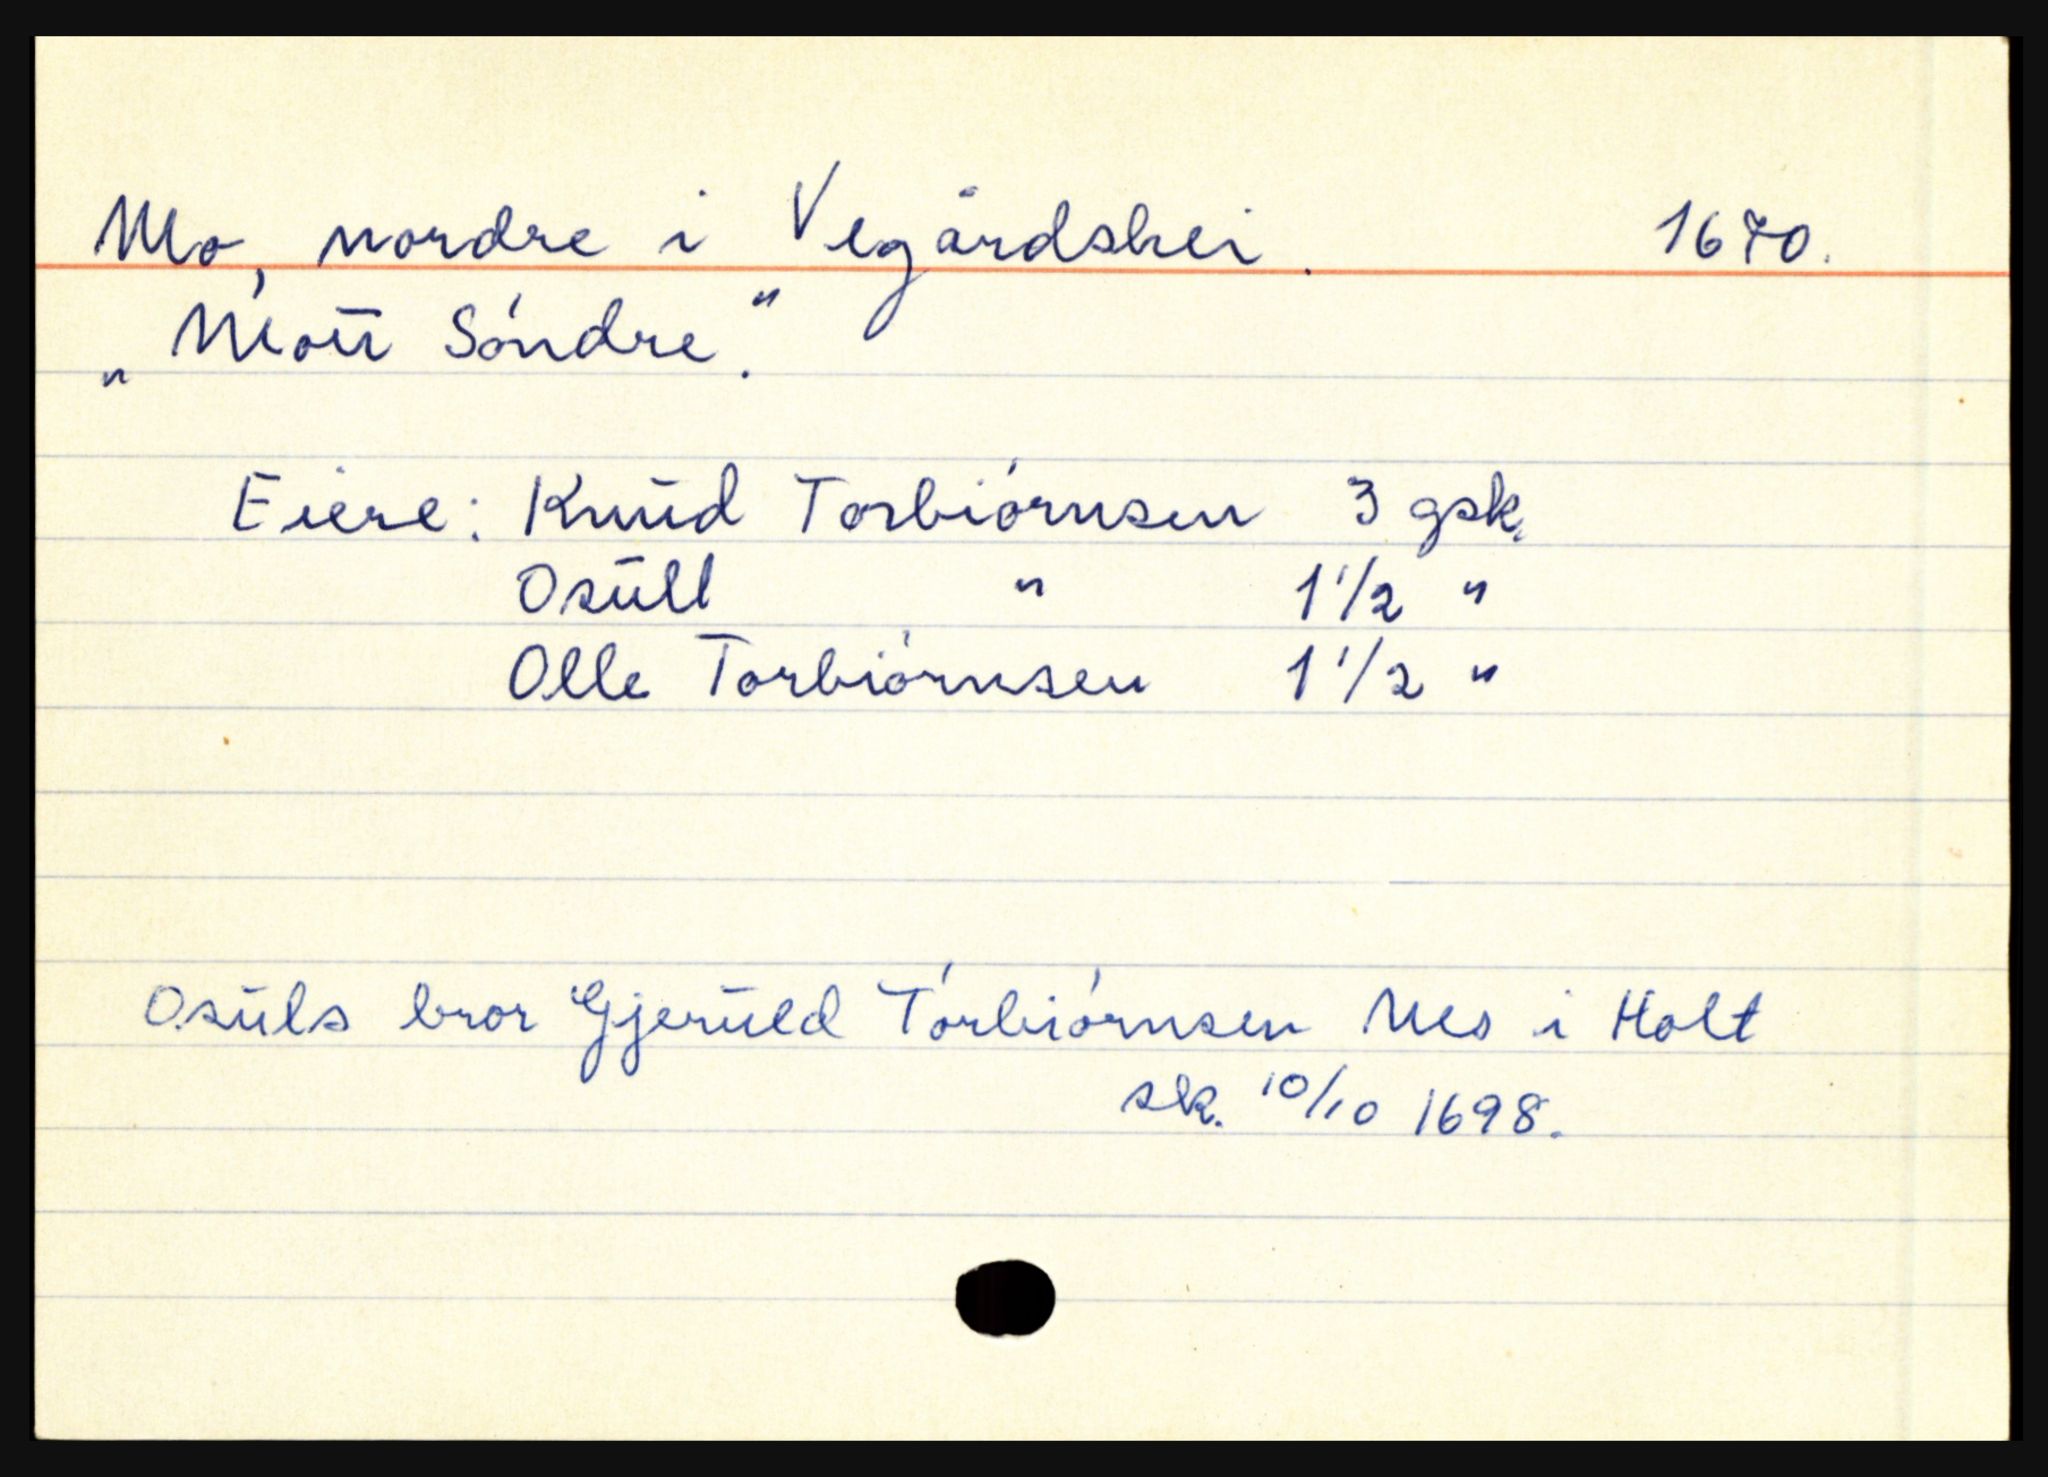 Mo, nordre i Vegårdshei. 1670.
„Moū Sóndre."
Eiere: Knūd Torbiórnsen 3 gsk.
Osūll " 1 1/2 "
Olle Torbiórnsen 1 1/2 "
Osūls bror Gjerūld Tórbiórnsen Nes i Holt
sk. 10/10 1698.